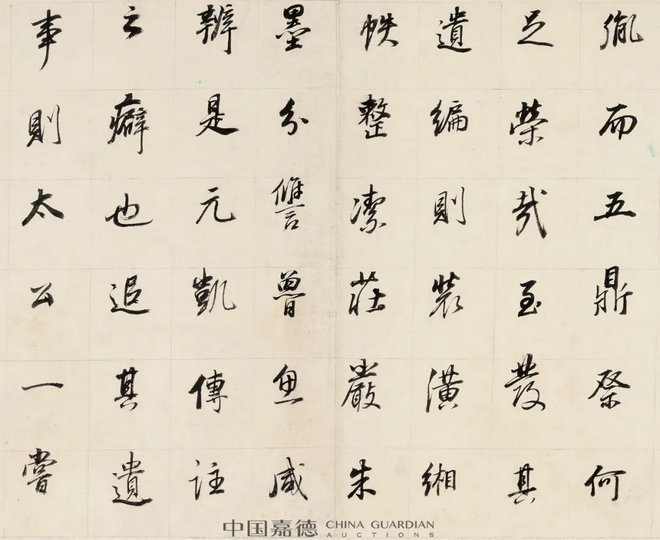 胤而五鼎祭何
足榮哉至發其
遺編則裝潢緗
帙整潔莊嚴朱
墨分讐曾魚咸
辨是元凱傳註
云癖也追其遺
事則太公一嘗
中国嘉德 CHINA GUARDIAN
AUCTIONS